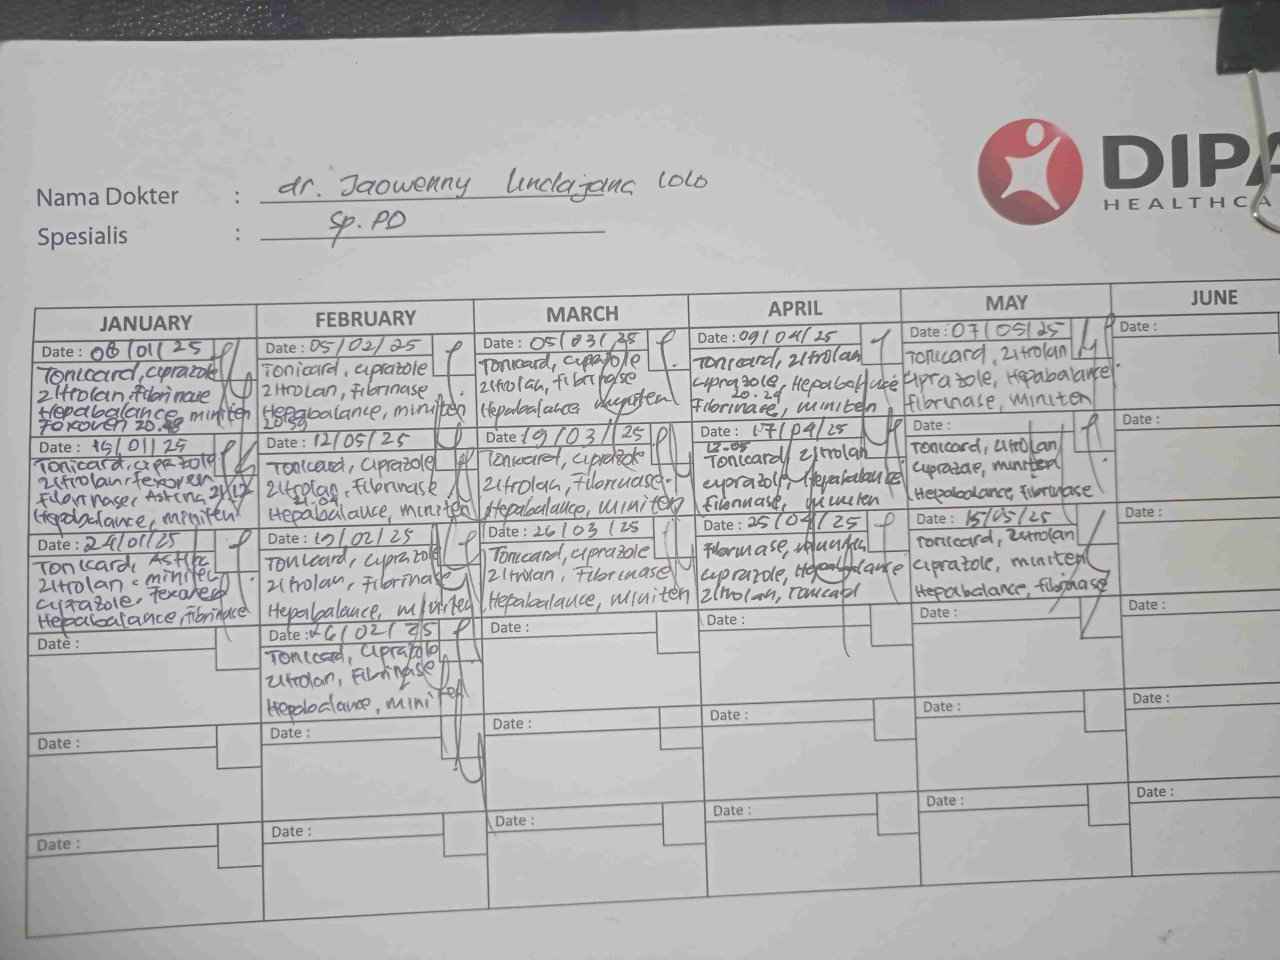 Nama Dokter : dr. Jaowenny Lindajana Lolo
Spesialis : Sp. PD
DIPA
HEALTHCA
JANUARY
Date : 08/01/25
Tonicard, Ciprazole
Zitrolan, Fibrinase
Hepabalance, miniten
20.48
Date : 15/01/25
Tonicard, Ciprazole
Zitrolan, Fexoven
Fibrinase, Astina 21.12
Hepabalance, miniten
Date : 24/01/25
Tonicard,
Zitrolan, miniten
Ciprazole, Fexoven
Hepabalance, Fibrinase
Date :
Date :
Date :
FEBRUARY
Date : 05/02/25
Tonicard, Ciprazole
Zitrolan, Fibrinase
Hepabalance, miniten
20.59
Date : 12/05/25
Tonicard, Ciprazole
Zitrolan, Fibrinase
21.04
Hepabalance, miniten
Date : 19/02/25
Tonicard, Ciprazole
Zitrolan, Fibrinase
Hepabalance, miniten
Date : 26/02/25
Tonicard, Ciprazole
Zitrolan, Fibrinase
Hepabalance, miniten
Date :
Date :
MARCH
Date : 05/03/25
Tonicard, Ciprazole
Zitrolan, Fibrinase
Hepabalance, miniten
Date : 19/03/25
Tonicard, Ciprazole
Zitrolan, Fibrinase
Hepabalance, miniten
Date : 26/03/25
Tonicard, Ciprazole
Zitrolan, Fibrinase
Hepabalance, miniten
Date :
Date :
Date :
APRIL
Date : 09/04/25
Tonicard, Zitrolan
Ciprazole, Hepabalance
20.29
Fibrinase, miniten
Date : 17/04/25
Tonicard, Zitrolan
Ciprazole, Hepabalance
Fibrinase, miniten
Date : 25/04/25
Fibrinase, miniten
Ciprazole, Hepabalance
Zitrolan, Tonicard
Date :
Date :
Date :
MAY
Date : 07/05/25
Tonicard, Zitrolan
Ciprazole, Hepabalance
Fibrinase, miniten
Date :
Tonicard, Zitrolan
Ciprazole, miniten
Hepabalance, Fibrinase
Date : 15/05/25
Tonicard, Zitrolan
Ciprazole, miniten
Hepabalance, Fibrinase
Date :
Date :
Date :
JUNE
Date :
Date :
Date :
Date :
Date :
Date :